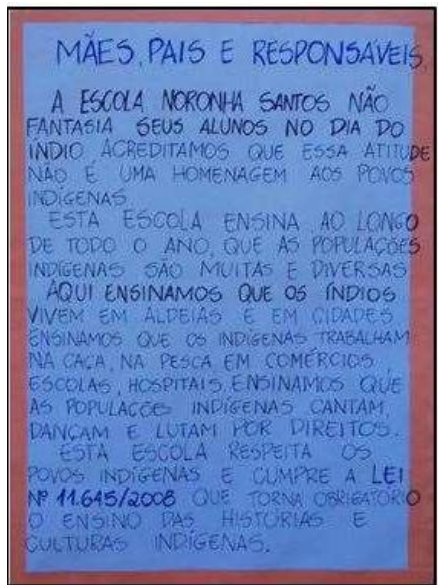 MÃES, PAIS E RESPONSÁVEIS,
A ESCOLA NORONHA SANTOS NÃO
FANTASIA SEUS ALUNOS NO DIA DO
ÍNDIO. ACREDITAMOS QUE ESSA ATITUDE
NÃO É UMA HOMENAGEM AOS POVOS
INDÍGENAS.
ESTA ESCOLA ENSINA, AO LONGO
DE TODO O ANO, QUE AS POPULAÇÕES
INDÍGENAS SÃO MUITAS E DIVERSAS
AQUI ENSINAMOS QUE OS ÍNDIOS
VIVEM EM ALDEIAS E EM CIDADES
ENSINAMOS QUE OS INDÍGENAS TRABALHAM
NA CAÇA, NA PESCA EM COMÉRCIOS,
ESCOLAS, HOSPITAIS. ENSINAMOS QUE
AS POPULAÇÕES INDÍGENAS CANTAM,
DANÇAM E LUTAM POR DIREITOS.
ESTA ESCOLA RESPEITA OS
POVOS INDÍGENAS E CUMPRE A LEI
Nº 11.645/2008 QUE TORNA OBRIGATÓRIO
O ENSINO DAS HISTÓRIAS E
CULTURAS INDÍGENAS.